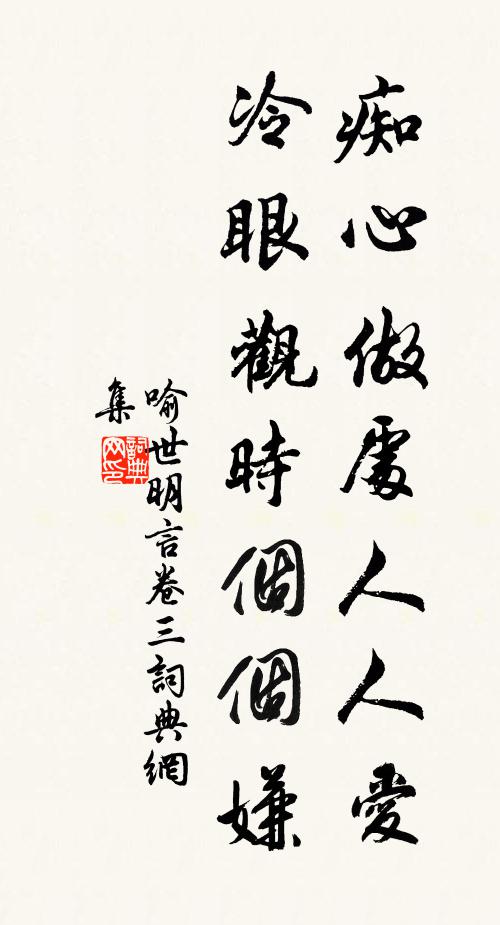 痴心做處人人愛
冷眼觀時個個嫌
喻世明言卷三詞典網
集
詞典网印